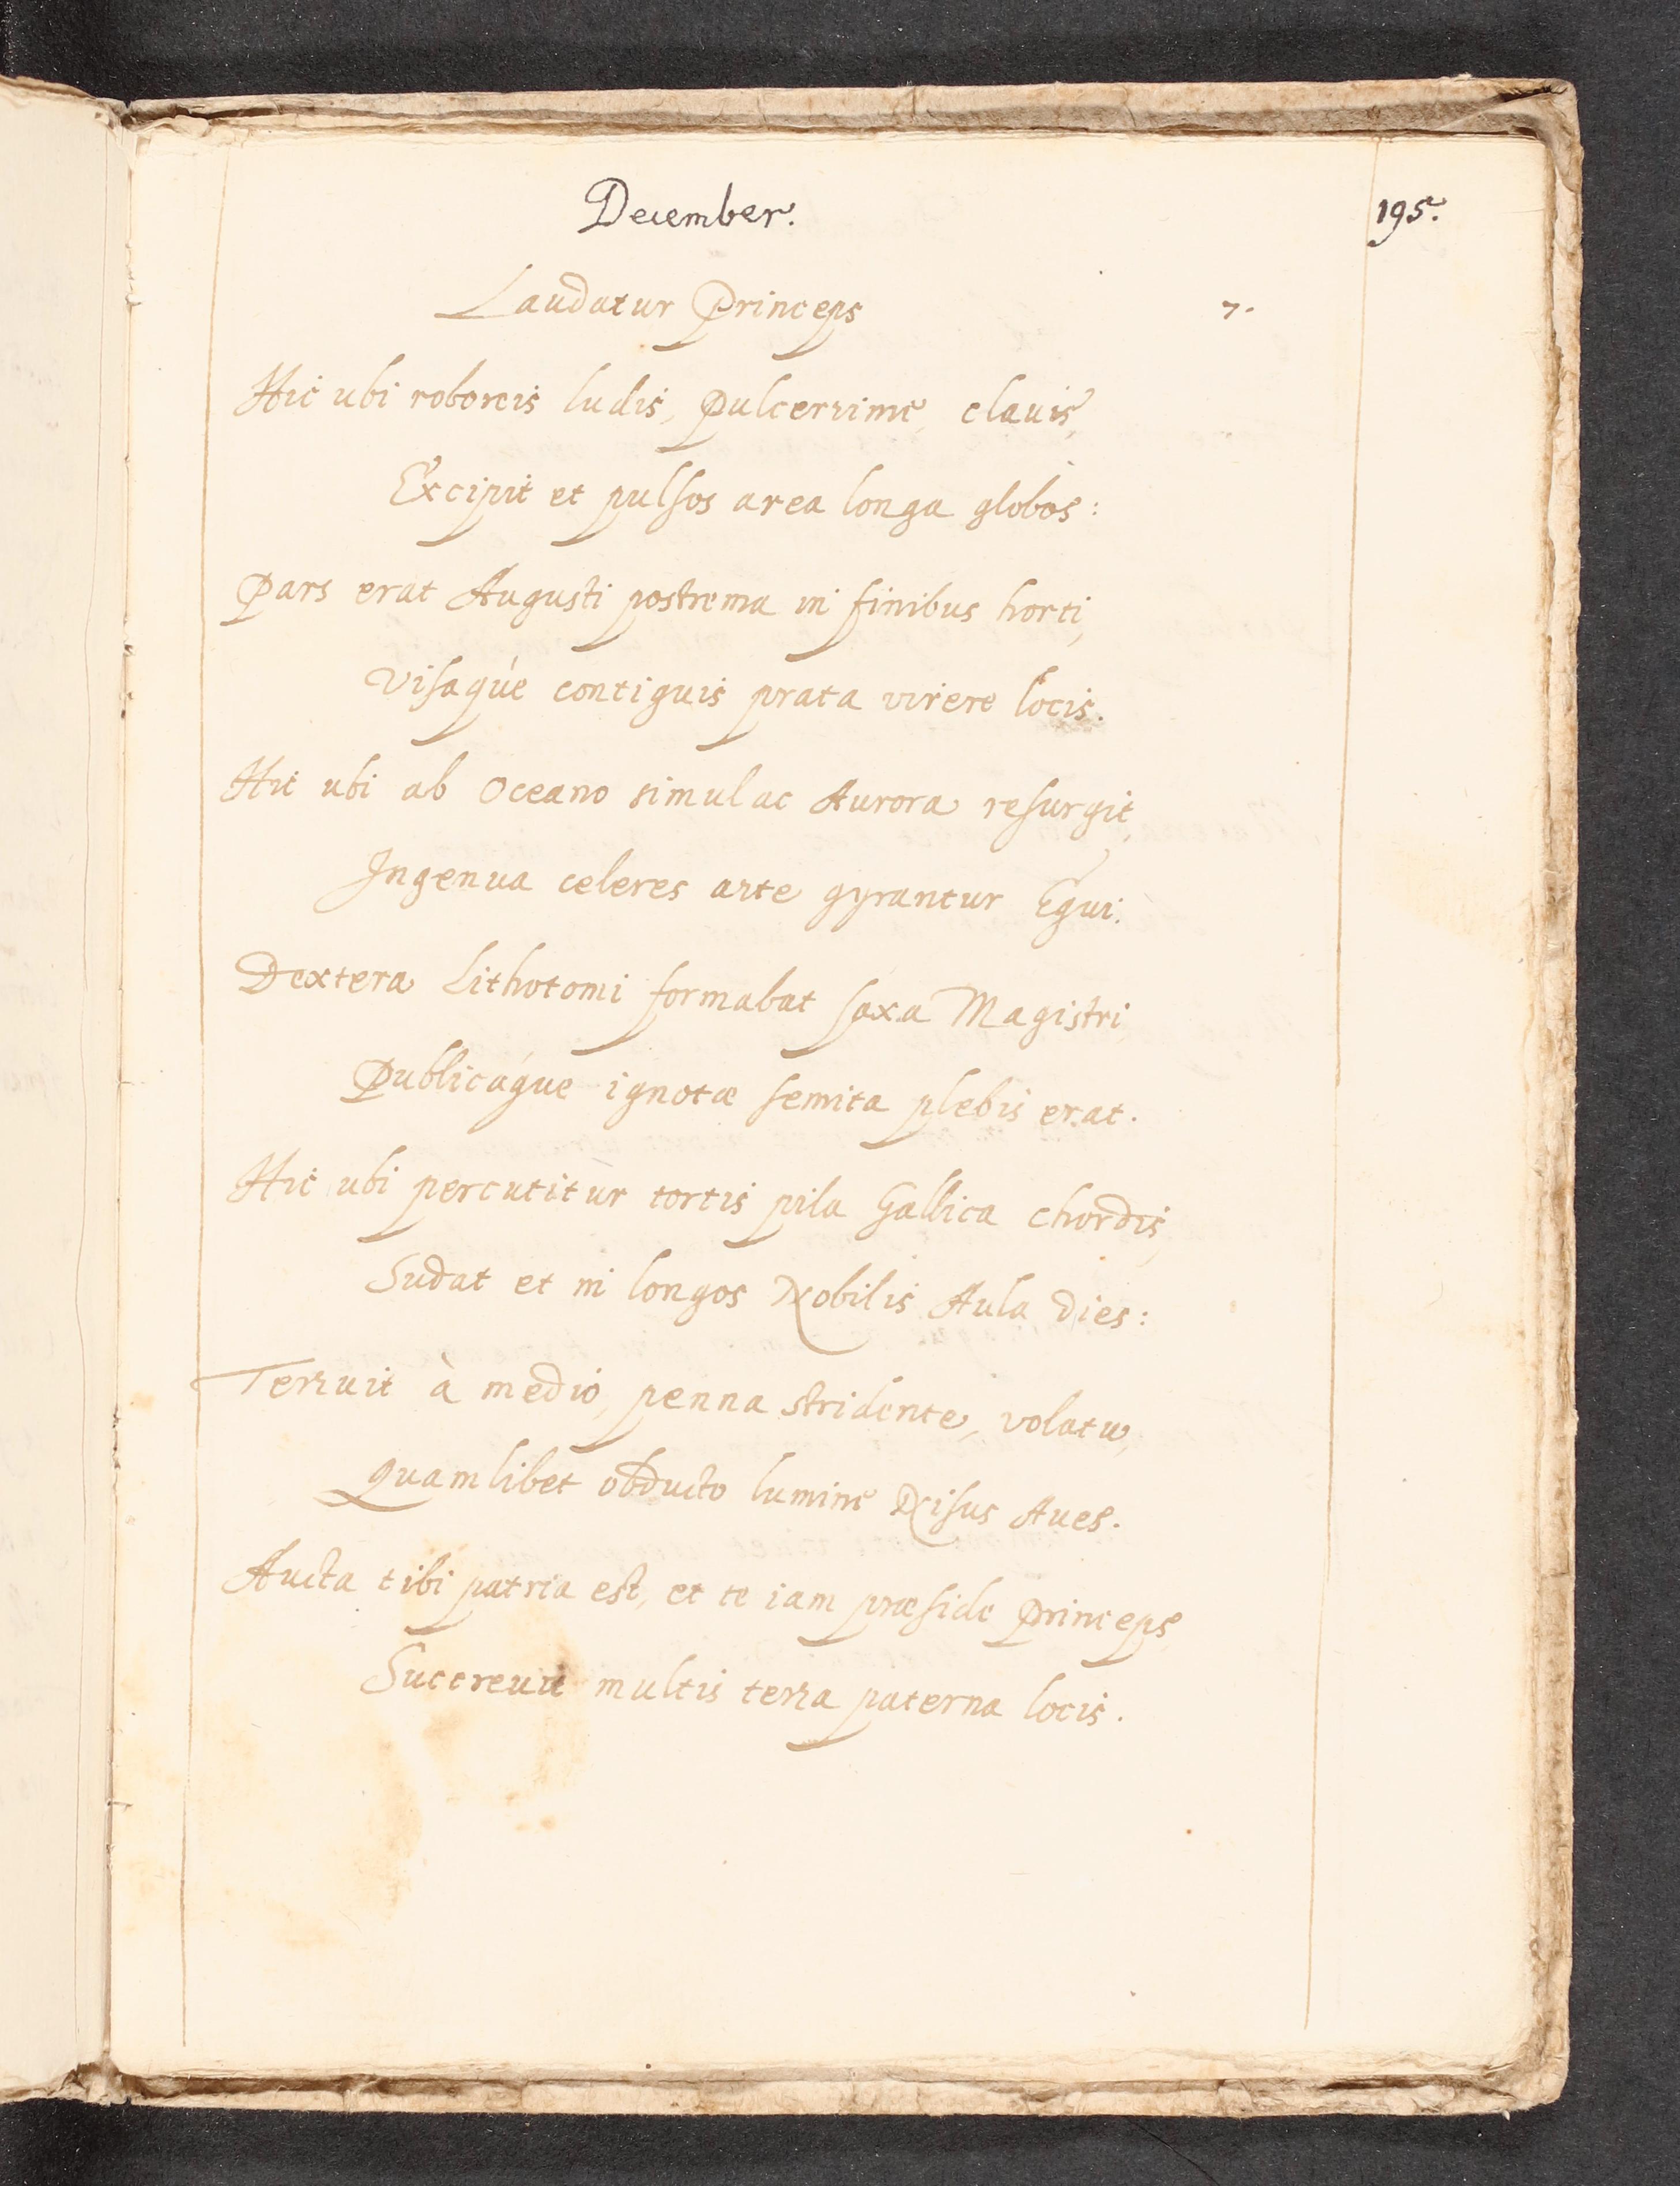 December. 195.
Laudatur Princeps 7.
Hic ubi roboreis ludis, Pulcerrime, clauis,
Excipit et pulsos area longa globos:
Pars erat Augusti postrema in finibus horti,
Visaque contiguis prata virere locis.
Hic ubi ab Oceano simulac Aurora resurgit,
Ingenua celeres arte gyrantur Equi:
Dextera Lithotomi formabat saxa Magistri,
Publicáque ignotæ semita plebis erat.
Hic ubi percutitur tortis pila Gallica chordis,
Sudat et in longos Nobilis Aula dies:
Terruit à medio, penna stridente, volatu,
Quamlibet obducto lumine Nisus Aues.
Aucta tibi patria est, et te iam præside Princeps
Succreuit multis terra paterna locis.